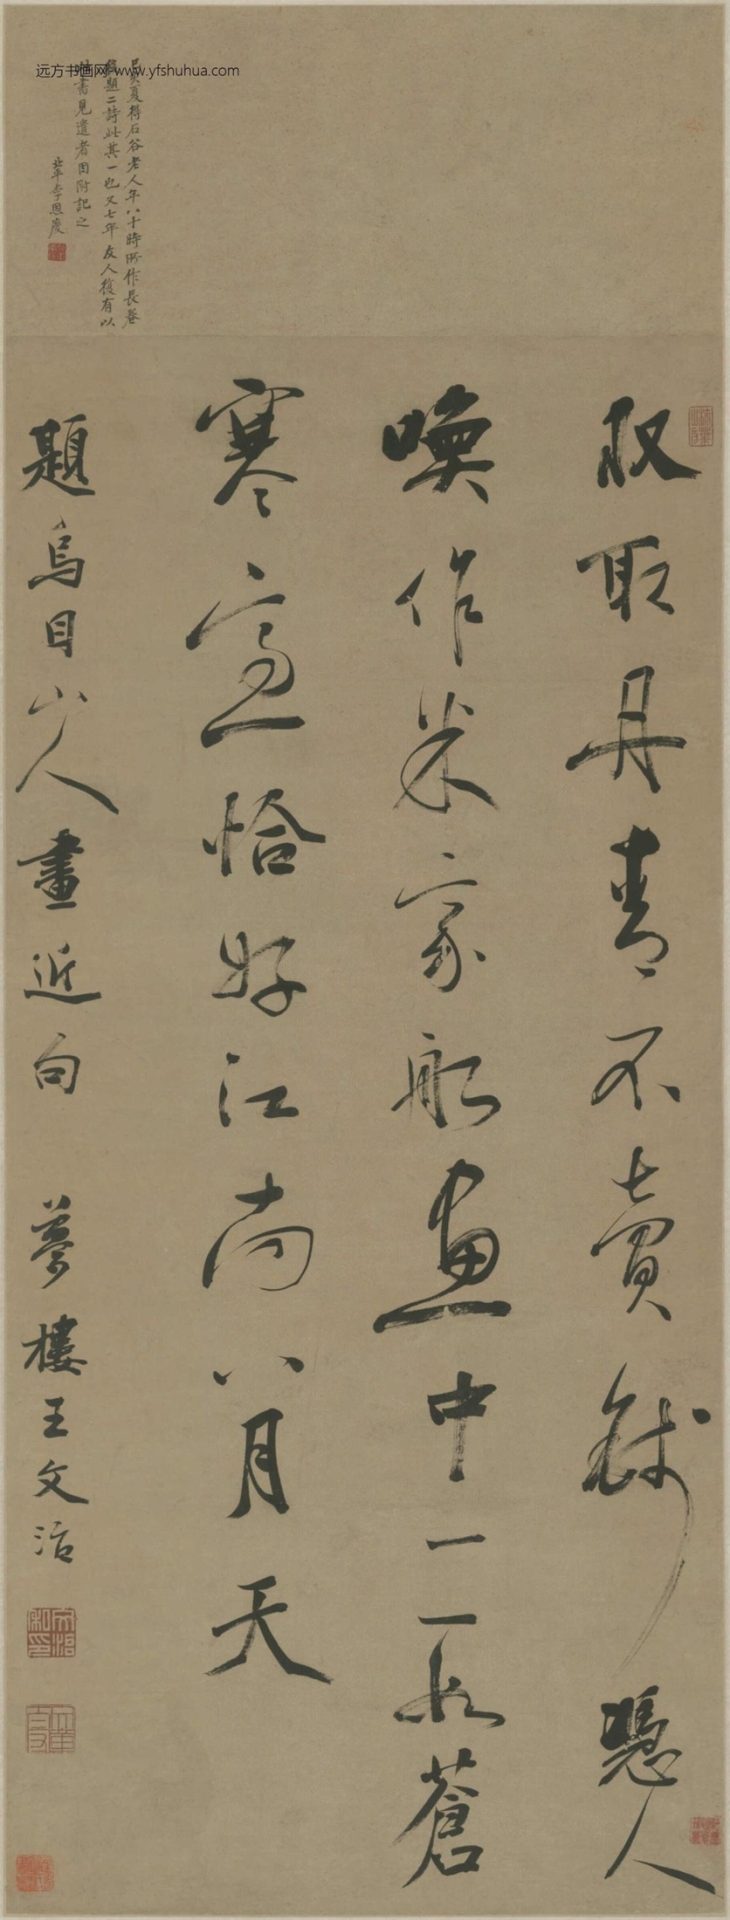 远方书画网 www.yfshuhua.com
收取丹青不賣錢憑人
喚作米家船畫中一段蒼
寒意恰好江南八月天
題烏目山人畫近句 夢樓王文治
己亥夏得石谷老人年八十時所作長卷
題二詩此其一也又七年友人復有以
書見遺者因附記之
北平李恩慶